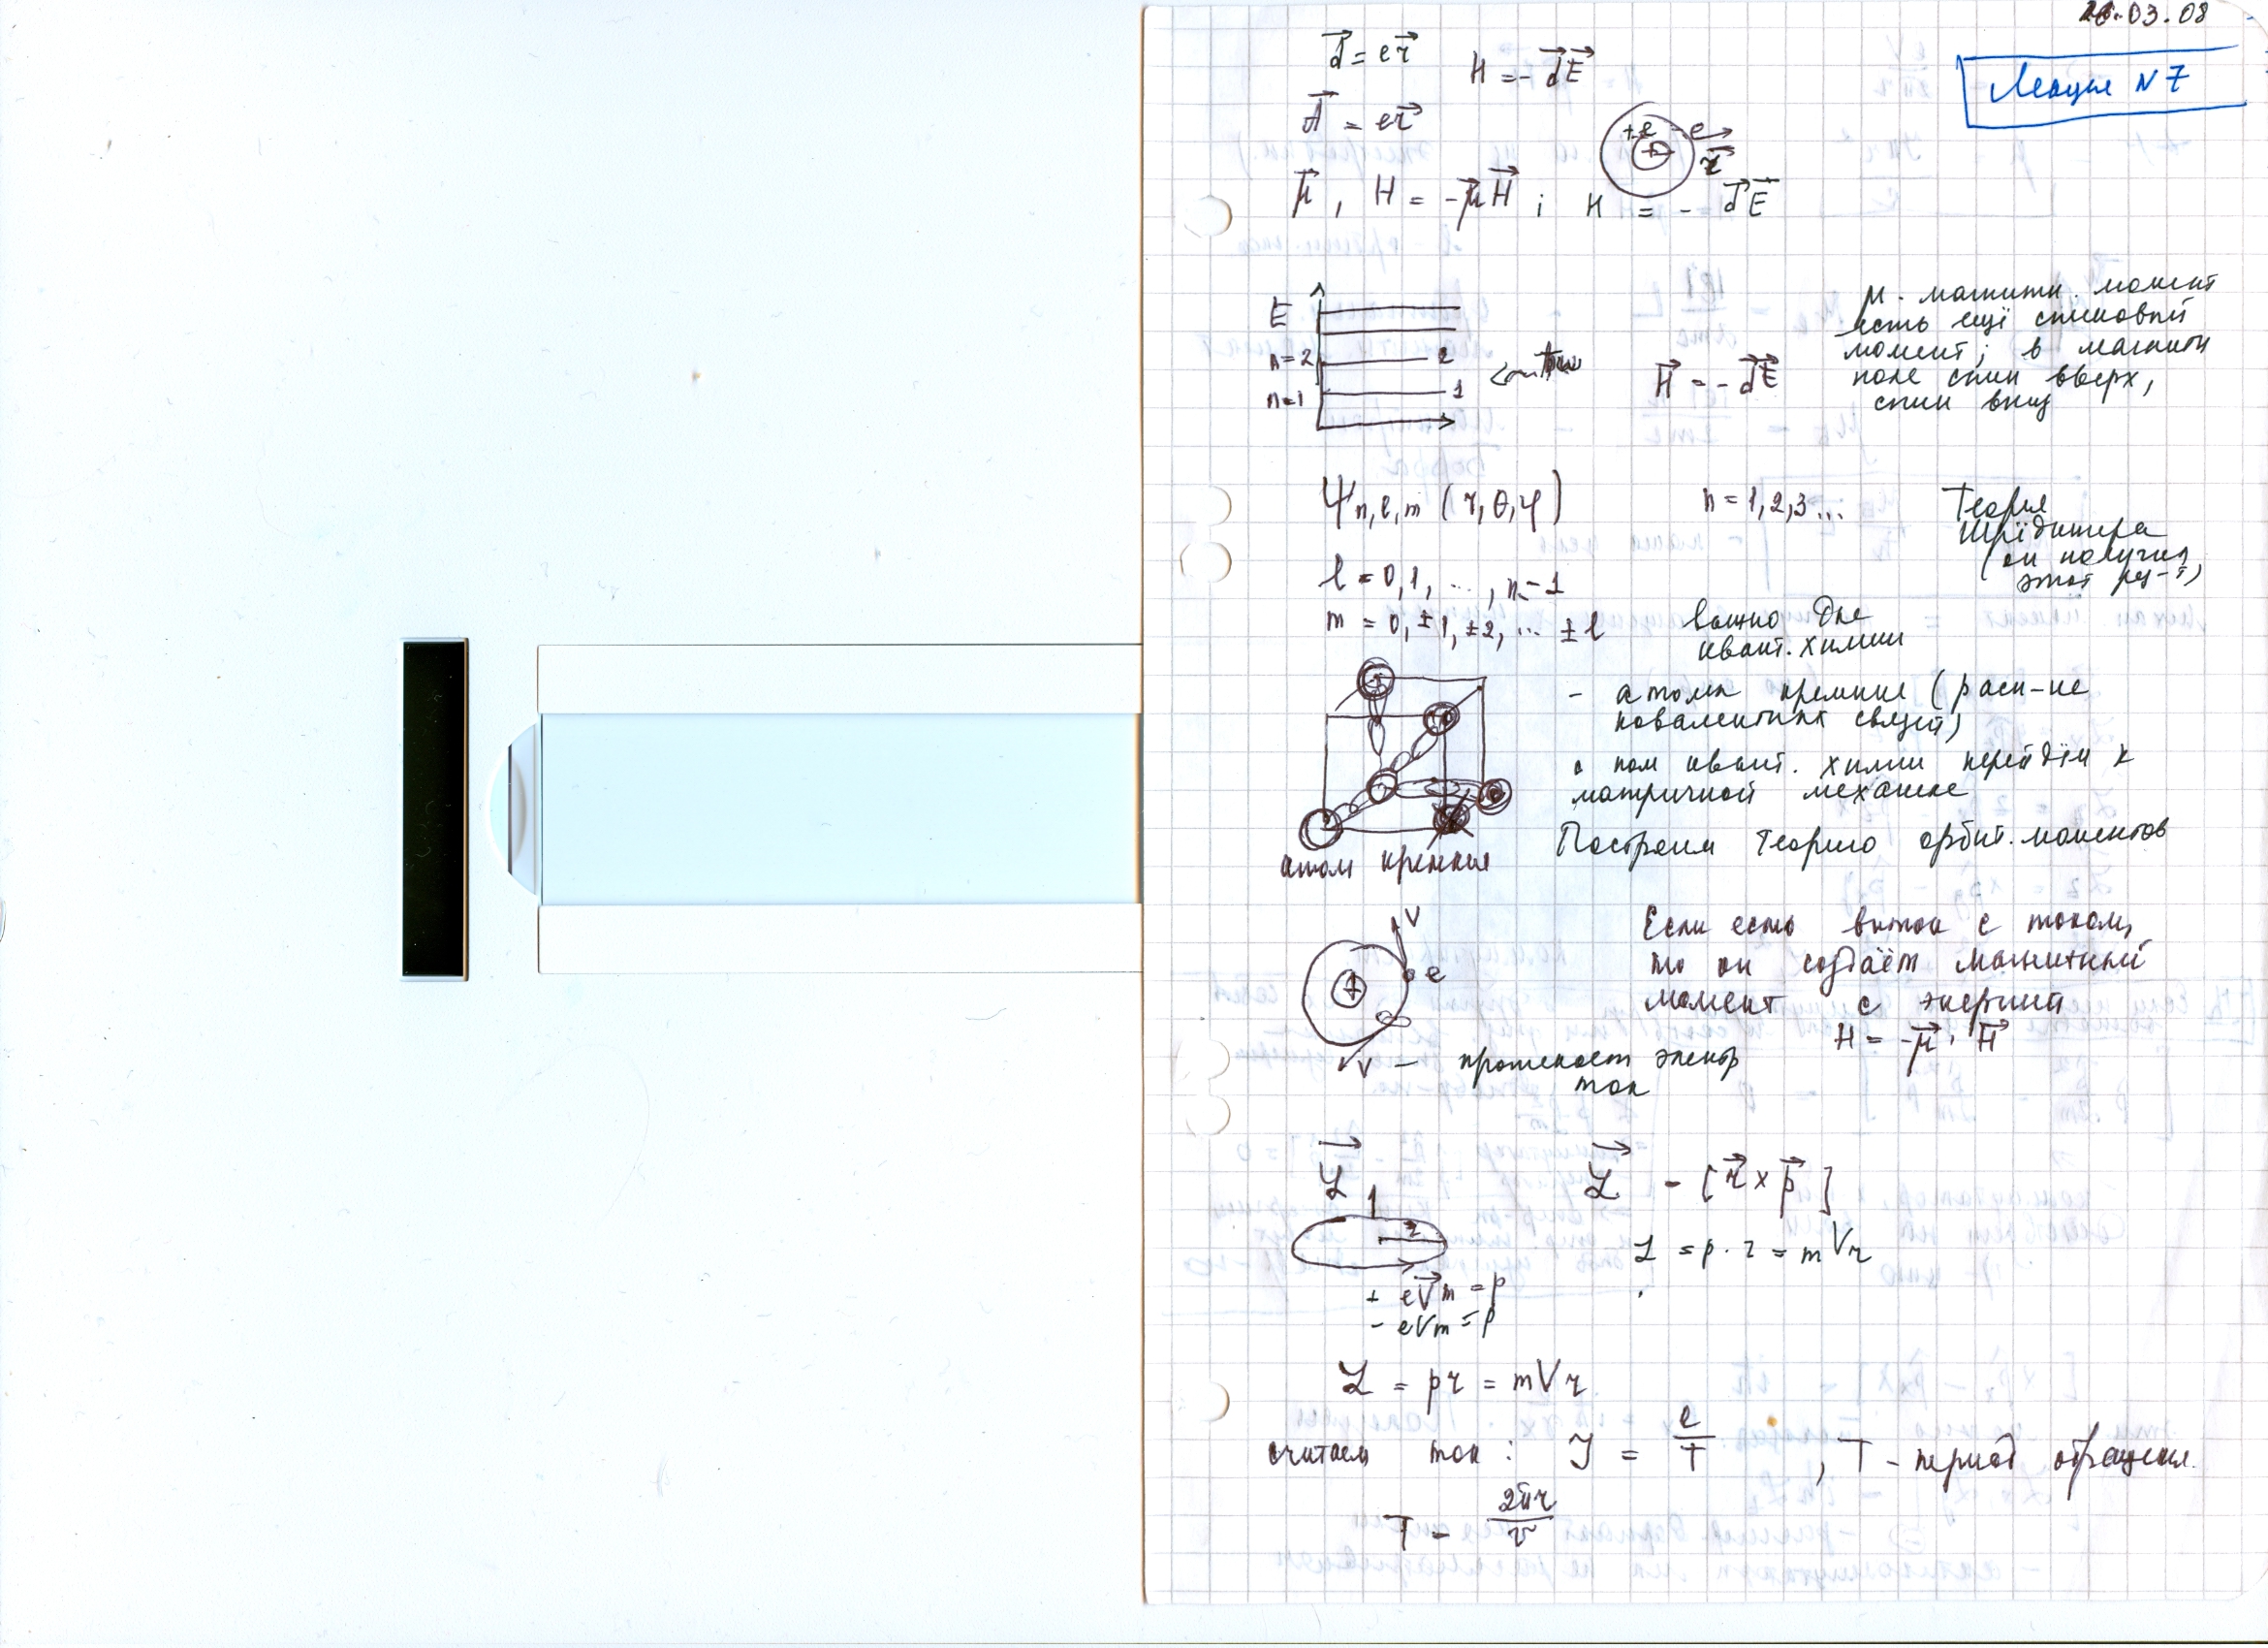 .03.08
Лекция N 7
d⃗ = er⃗
H = - d⃗E⃗
A⃗ = er⃗
+e -e
r⃗
μ⃗ , H = -μ⃗H⃗ ; H = - d⃗E⃗
E
n=2 2
n=1 1
H⃗ = - d⃗E⃗
М - магнитн. момент
есть ещё спиновый
момент; в магнитн
поле спин вверх,
спин вниз
Ψn,l,m (r, θ, φ)
n = 1,2,3...
Теория
Шрёдингера
(он получил
этот рез-т)
l = 0,1, ..., n-1
m = 0, ±1, ±2, ... ±l
важно для
квант. химии
- атома кремния (расп-ие
ковалентных связей)
с пом квант. химии перейдём к
матричной механике
Построим теорию орбит. моментов
атом кремния
V
e
+
V - протекает электр
ток
Если есть виток с током,
то он создаёт магнитный
момент с энергией
H = -μ⃗ · H⃗
L⃗
r
L⃗ - [r⃗ x p⃗]
L = p · r = mVr
+ eV⃗m = p
- eVm = p
L = pr = mVr
считаем ток : J = e/T , T - период обращения.
T = 2πr/v